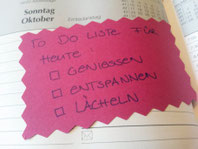 Sonntag
Oktober
TO DO LISTE FÜR
HEUTE
□ GENIESSEN
□ ENTSPANNEN
□ LÄCHELN